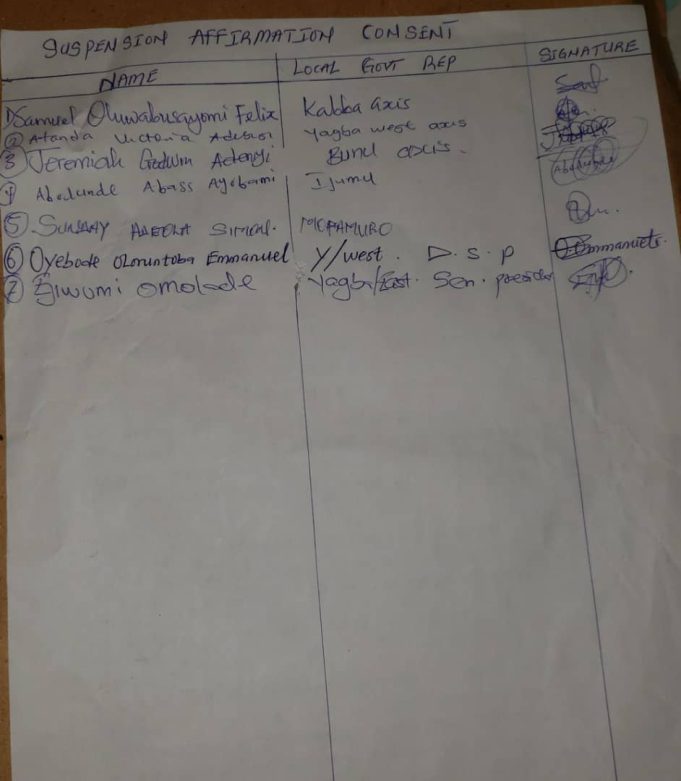 SUSPENSION AFFIRMATION CONSENT
NAME LOCAL GOVT REP SIGNATURE
1) Samuel Oluwabusayomi Felix Kabba axis
2 Atanda Victoria Yagba west axis
3 Jeremiah Godwin Adeniyi Bunu axis.
4 Abodunde Abass Ayobami Ijumu Abodunde
5 SUNDAY ADEOLA SIMEON. MOPAMURO
6 Oyebode Oloruntoba Emmanuel Y/west. D.S.P
7 Ejiwumi Omolade Yagba/East. Sen. president